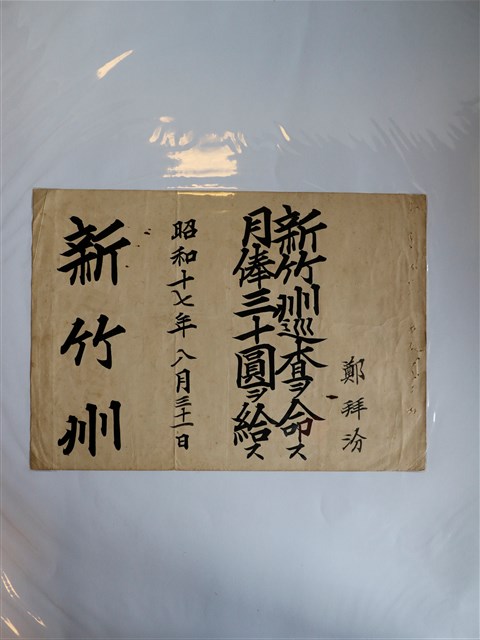 鄭拜汾
新竹州巡査ヲ命ス
月俸三十圓ヲ給ス
昭和十七年八月三十一日
新竹州